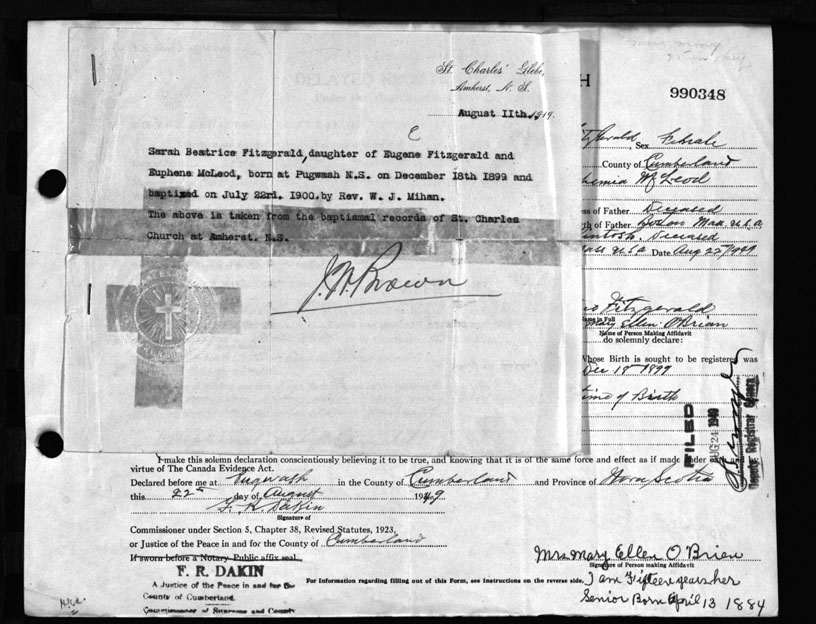 St. Charles' Glebe,
Amherst, N. S.
August IIth. 1919.
Sarah Beatrice Fitzgerald, daughter of Eugene Fitzgerald and
Euphene McLeod, born at Pugwash N.S. on December 18th 1899 and
baptized on July 22nd. 1900. by Rev. W. J. Mihan.
The above is taken from the baptismal records of St. Charles
Church at Amherst. N.S.
J. W. Brown
H
990348
Fitzgerald, Sex Female
County of Cumberland
McLeod
of Father Deceased
of Father Boston Mass U.S.A.
Deceased
U.S.A Date Aug 22nd 1949
Fitzgerald
Name in Full
Mary Ellen O'Brian
Name of Person Making Affidavit
do solemnly declare:
Whose Birth is sought to be registered was
Dec 18th 1899
time of Birth
FILED
AUG 24 1949
Deputy Registrar General
I make this solemn declaration conscientiously believing it to be true, and knowing that it is of the same force and effect as if made under
virtue of The Canada Evidence Act.
Declared before me at Pugwash in the County of Cumberland and Province of Nova Scotia
this 22nd day of August 1949
F. R. Dakin
Signature of
Commissioner under Section 5, Chapter 38, Revised Statutes, 1923,
or Justice of the Peace in and for the County of Cumberland
If sworn before a Notary Public affix seal.
F. R. DAKIN
A Justice of the Peace in and for the
County of Cumberland.
Commissioner of Supreme and County
For Information regarding filling out of this Form, see Instructions on the reverse side.
Mrs. Mary Ellen O'Brien
Signature of Person making Affidavit
I am Fifteen years her
Senior Born April 13 1884